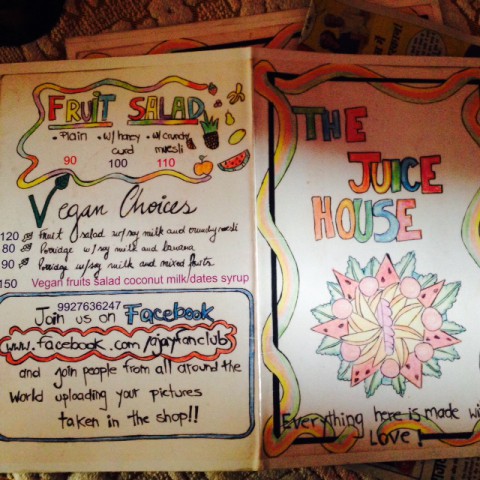 FRUIT SALAD
• Plain • w/ honey • w/ crunchy
curd muesli
90 100 110
Vegan Choices
120 Fruit salad w/ soy milk and crunchy muesli
80 Porridge w/ soy milk and banana
90 Porridge w/ soy milk and mixed fruits
150 Vegan fruits salad coconut milk/dates syrup
9927636247
Join us on Facebook
www.facebook.com/ajayfanclub
and join people from all around the
World uploading your pictures
taken in the shop!!
THE
JUICE
HOUSE
Everything here is made wi
Love!